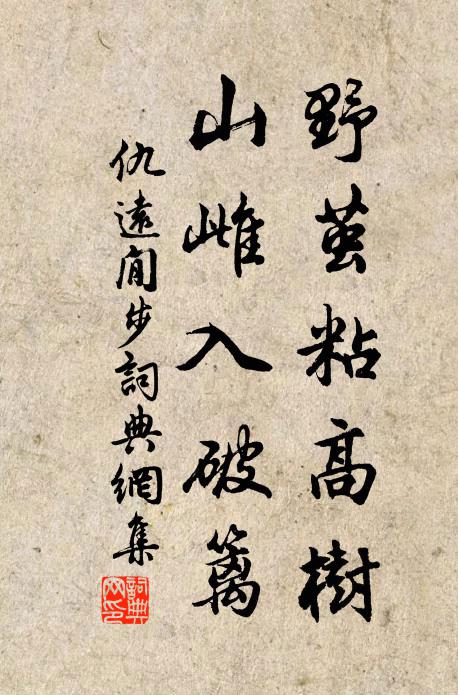 野茧粘高樹
山雌入破篱
仇遠閒步詞典網集
詞典网印